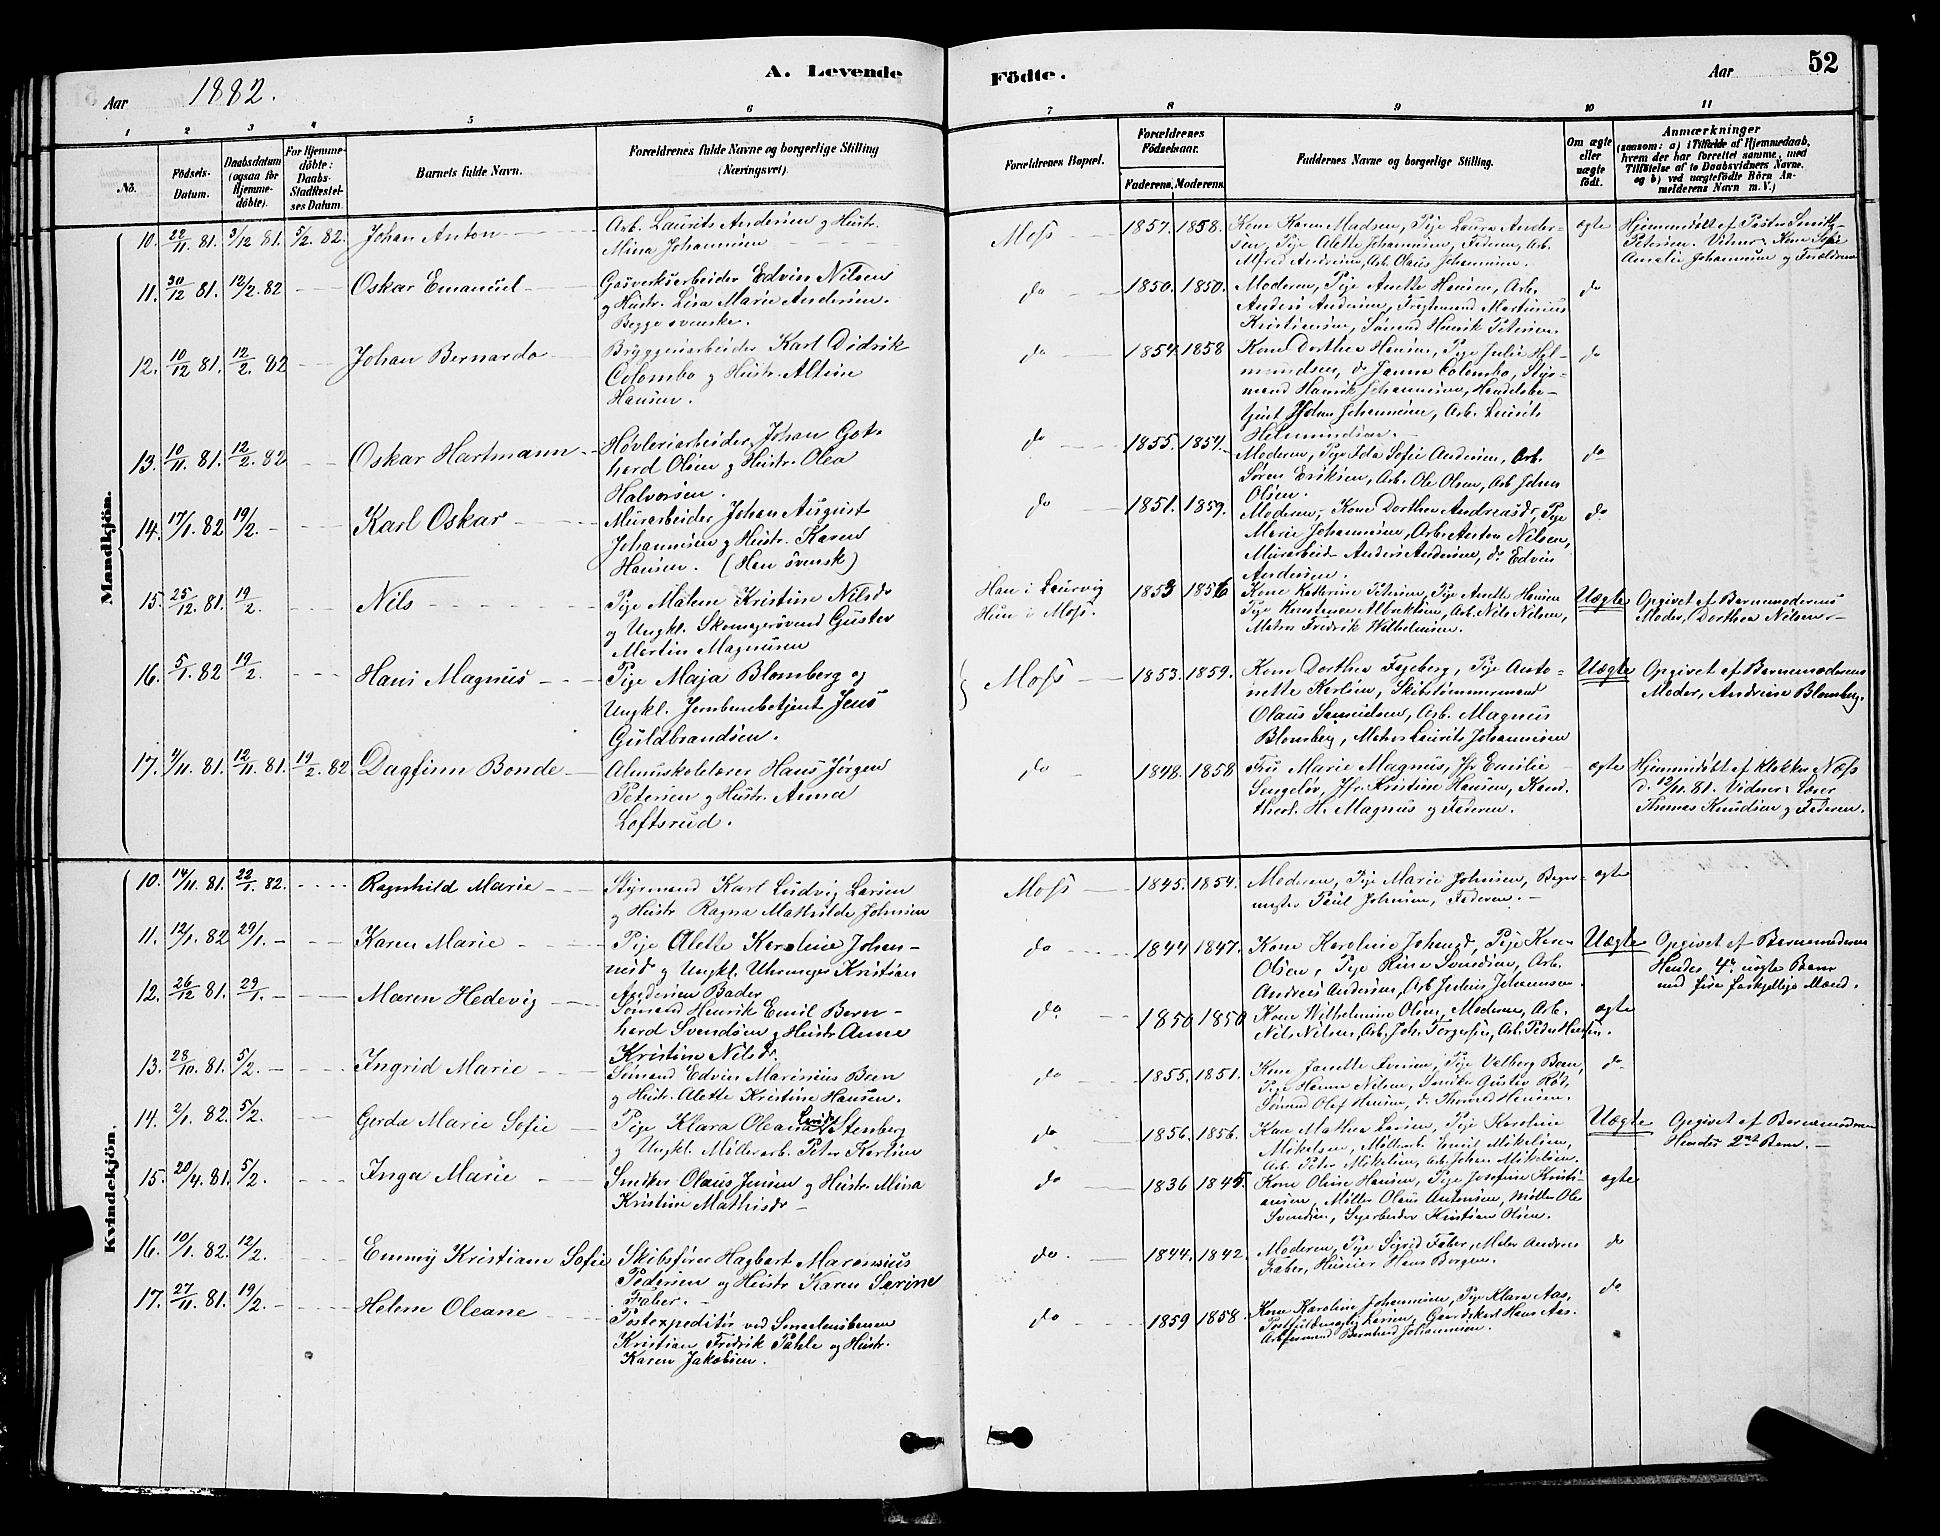 Aar 1882. A. Levende Födte. Aar 52
1 2 3 4 5 6 7 8 9 10 11
No. Födsels-Datum. Daabsdatum (ogsaa för Hjemmedöbte). For Hjemmedöbte: Daabs-Stadfæstelses Datum. Barnets fulde Navn. Forældrenes fulde Navne og borgerlige Stilling (Næringsvei). Forældrenes Bopæl. Forældrenes Födselsaar. Faderens. Moderens. Faddernes Navne og borgerlige Stilling. Om ægte eller uægte födt. Anmærkninger (saasom: a) i Tilfælde af Hjemmedaab, hvem der har forrettet samme, med Tilföielse af to Daabsvidners Navne. og b) ved uægtefödte Börn Anmelderens Navn m. V.)
Mandkjön.
10. 22/11 81. 3/12 81. 5/2 82. Johan Anton Arb. Laurits Andersen g Hustr. Mina Johannsen Moss 1857. 1858. Kone Karen Madsen, Pige Laura Andersen, Pige Alette Johannesen, Faderen, Arb. Alfred Andersen, Arb. Olaus Johannesen. ægte Hjemmedöbt af Pastor Smith Petersen. Vidner: Kone Sofie Amalie Johannesen g Forældrene
11. 30/12 81. 12/2 82 Oskar Emanuel Gasverksarbeider Edvin Nilsen g Hustr. Lisa Marie Andersen. Begge svenske. do 1850. 1850. Moderen, Pige Anette Hansen, Arb. Anders Andersen, Fragtmand Martinius Kristiansen, Sømand Henrik Petersen. do
12. 10/12 81. 12/2. 82 Johan Bernardo Bryggeriarbeider Karl Didrik Colombo g Hustr. Altine Hansen. do 1854. 1858 Kone Dorthea Hansen, Pige Julie Helmundsen, do Janna Colombo, Styrmand Henrik Johannesen, Handelsbetjent Johan Johannesen, Arb. Laurits Helmundsen. do
13. 10/11 81. 12/2. 82 Oskar Hartmann Høvleriarbeider Johan Gothard Olsen g Hustr. Olea Halvorsen. do 1855. 1857. Moderen, Pige Ida Sofie Andersen, Arb. Søren Eriksen, Arb. Ole Olsen, Arb Johan Olsen. do
14. 17/1. 82 19/2. Karl Oskar Murarbeider Johan August Johannesen g Hustr. Karen Hansen. (Han svensk) do 1851. 1859. Moderen, Kone Dorthea Andreasdr, Pige Marie Johannesen, Arb. Anton Nilsen, Murarbeid. Anders Andersen, do Edvin Andersen. do
15. 25/12 81. 19/2. Nils Pige Malene Kristine Nilsdr og Ungkl. Skomagersvend Gustav Martin Magnusen Han i Laurvig Hun i Moss. 1853 1856 Kone Katherine Petersen, Pige Anette Hansen Pige Konstanse Albrektsen, Arb. Nils Nilsen, Matros Fredrik Wilhelmsen. Uægte Opgivet af Barnemoderens Moder, Dorthea Nilsen
16. 5/1. 82 19/2. Hans Magnus Pige Maja Blomberg og Ungkl. Jernbanebetjent Jens Guldbrandsen. Moss 1853. 1859. Kone Dorthea Fageberg, Pige Antonette Karlsen, Skibstømmermand Olaus Samuelsen, Arb. Magnus Blomberg, Matros Laurits Johannesen Uægte Opgivet af Barnemoderens Moder, Andrine Blomberg.
17. 4/11. 81. 12/11. 81. 19/2. 82 Dagfinn Bonde Almuskolelærer Hans Jørgen Petersen g Hustr. Anna Loftsrud. do 1848. 1858 Fru Marie Magnus, Jfr Emilie Jfr. Kristine Hansen, Kand. theol. H. Magnus og Faderen. ægte Hjemmedöbt af Klokker Næss d. 12/11. 81. Vidner: Lærer Thomas Knudsen g Faderen.
Kvindekjön.
10. 14/11. 81. 22/1. 82. Ragnhild Marie Styrmand Karl Ludvig Larsen g Hustr Ragna Mathilde Johnsen Moss 1845. 1854. Moderen, Pige Marie Johnsen, Bagermester Paul Johnsen, Faderen. ægte
11. 12/1. 82 29/1. Karen Marie Pige Alette Karoline Johannesd g Ungkl. Uhrmager Kristian Andersen Bader do 1844 1847. Kone Karoline Johansd, Pige Karen Olsen, Pige Rina Svendsen, Arb. Andreas Andersen, Arb Julius Johannesen. Uægte Opgivet af Barnemoderen Hendes 4de uægte Barn med fire forskjellige Mænd.
12. 26/12 81. 29/1. Maren Hedevig Sømand Henrik Emil Bernhard Svendsen g Hustr Anne Kristine Nilsdr. do 1850 1850 Kone Wilhelmine Olsen, Moderen, Arb. Nils Nilsen, Arb. Joh. Torgersen, Arb. Peder Hansen. ægte
13. 28/10. 81. 5/2. Ingrid Marie Sømand Edvin Marinius Been g Hustr. Alette Kristine Hansen. do 1855. 1851. Kone Janette Iversen, Pige Valborg Been, Pige Hanna Nilsen, Snedker Gustav Rød, Sømand Olaf Hansen, do Thorvald Hansen. do
14. 2/1. 82. 5/2. Gerda Marie Sofie Pige Klara Oleana Stenberg g Ungkl. Møllerarb. Peter Karlsen do 1856. 1856. Kone Mathea Larsen, Pige Karoline Mikelsen, Møllerarb. Emil Mikelsen, Arb. Peter Mikelsen, Arb. Johan Mikelsen. Uægte Opgivet af Barnemoderen Hendes 2det Barn.
15. 20/4. 81. 5/2. Inga Marie Snedker Olaus Jensen g Hustr. Mina Kristine Mathisdr do 1836 1845. Kone Oline Hansen, Pige Josefine Kristiansen, Møller Olaus Antonsen, Møller Ole Svendsen, Kristian Olsen. ægte
16. 10/1. 82. 12/2. Emmy Kristiane Sofie Skibsfører Hagbart Marensius Pedersen og Hustr Karen Sarine Faber. do. 1844. 1842. Moderen, Pige Sigrid Faber, Maler Andreas Faber, Hans Borgen. do
17. 27/11. 81. 19/2. Helene Oleane Postexpeditör ved Smaalensbanen Kristian Fredrik Pahle og Hustr. Karen Jakobsen. do 1859 1858. Kone Karoline Johannesen, Pige Klara Aas, Postfuldmægtig Larsen, Hans Aas. Bernhard Johannesen. do